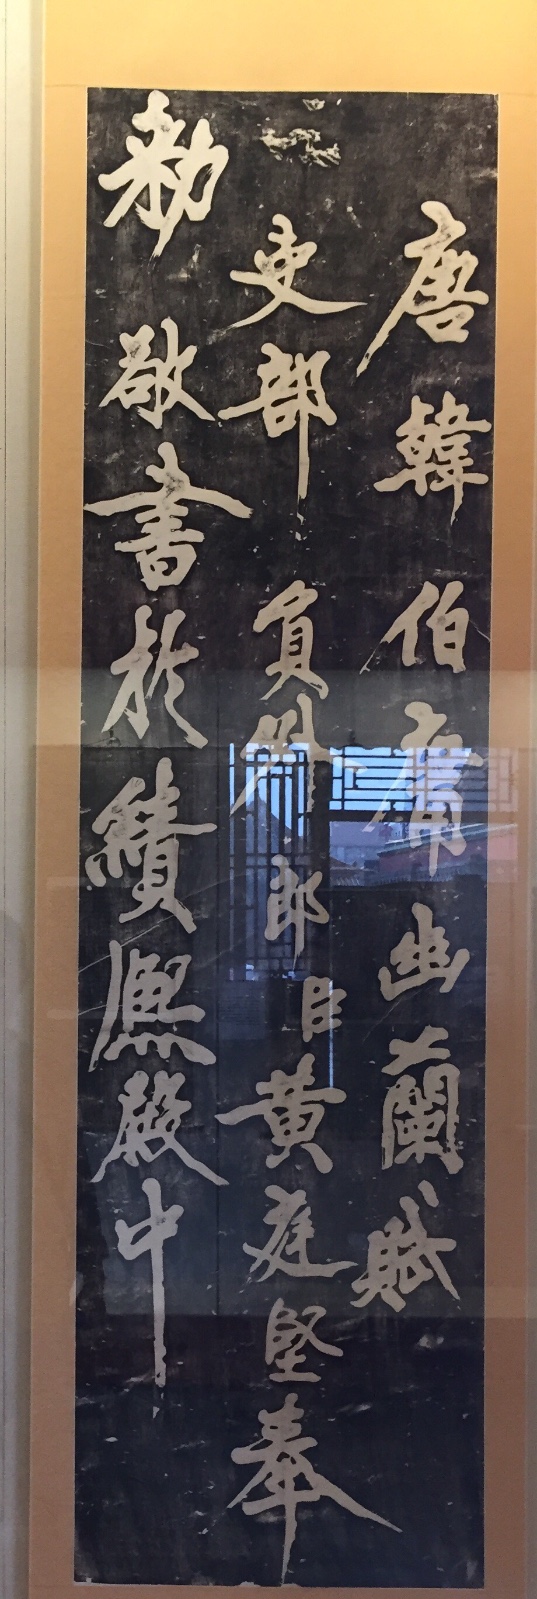 唐韓伯庸幽蘭賦
吏部員外郎臣黃庭堅奉
勑敬書於績熙殿中